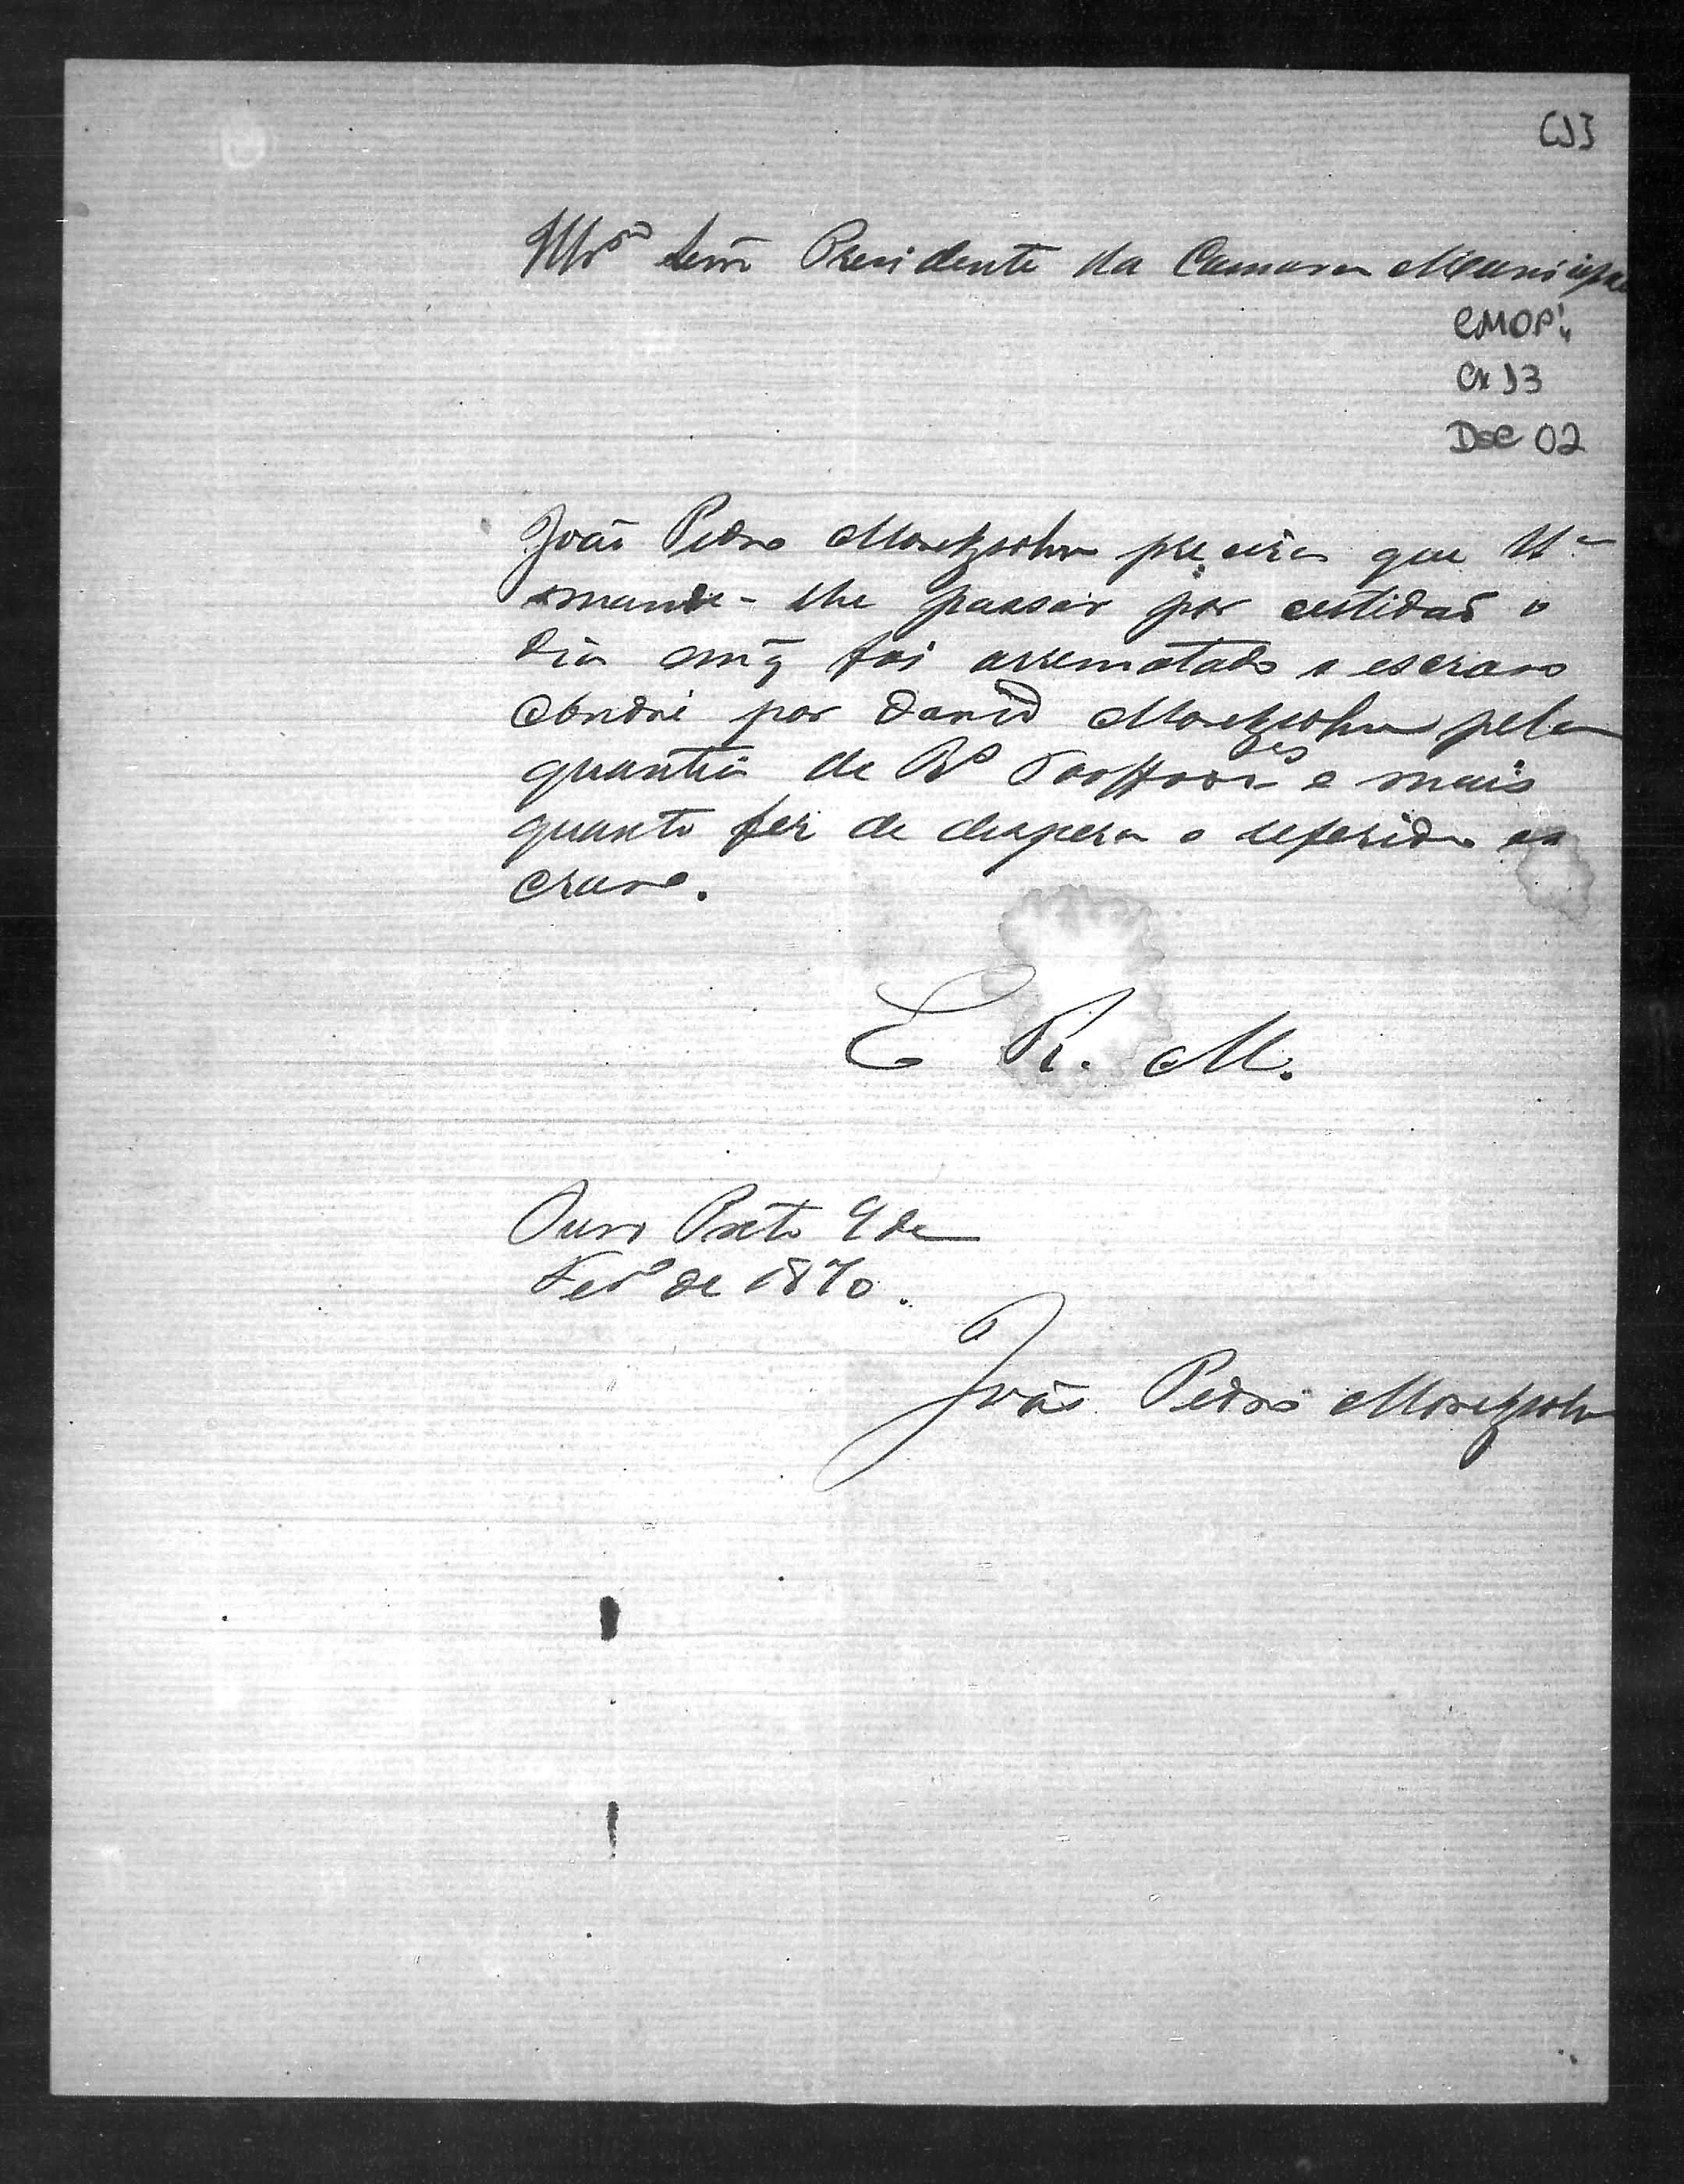 CJ3
Illmo Senr Presidente da Camara Municipal
CMOP
Cx 13
Doc 02
João Pedro Moretzsohn precisa que Va
mande-lhe passar por certidaõ o
dia em q̃ foi arrematado o escravo
André por David Moretzsohn pela
quantia de Rs e mais
quanto fez de despesa o referido es
cravo.
E R. M.
Ouro Preto 9 de
Fevo de 1870.
João Pedro Moretzsohn